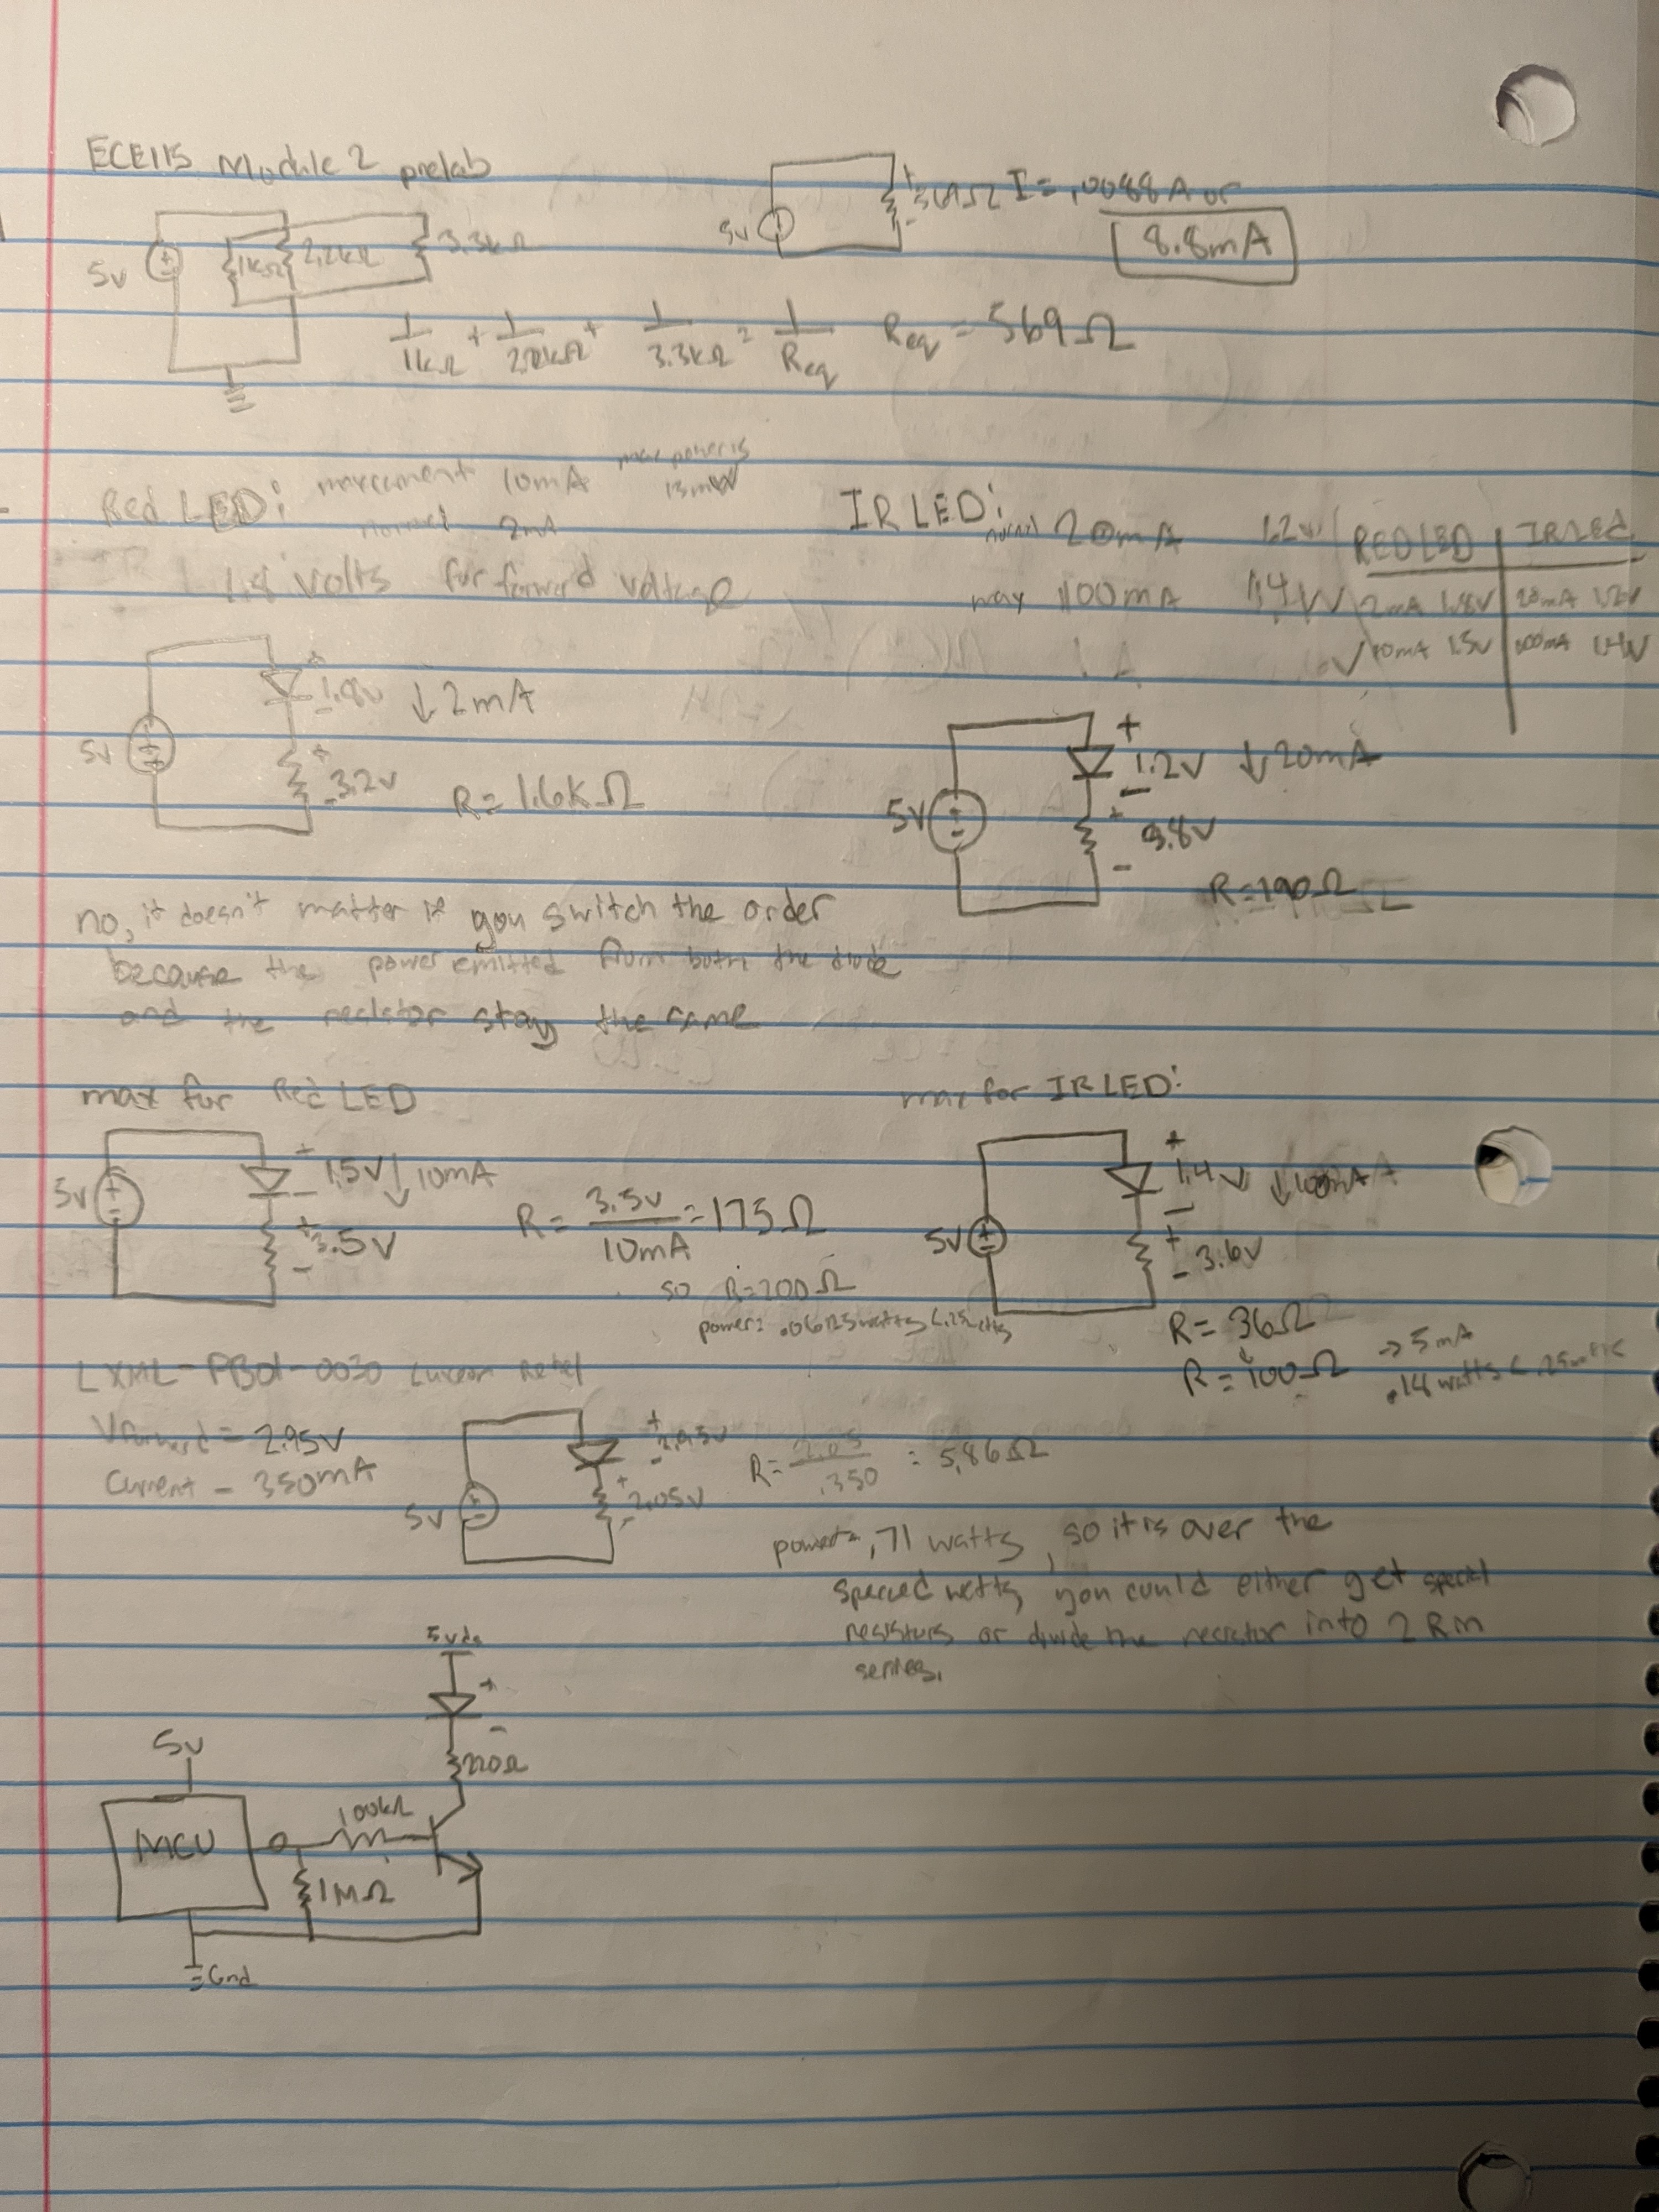 ECE115 Module 2 prelab
5v 1kΩ 2.2kΩ 3.3kΩ
5v + - 569Ω I = .0088A or
8.8mA
1/1kΩ + 1/2.2kΩ + 1/3.3kΩ = 1/Req Req = 569Ω
Red LED: max current 10mA max power is 15mW
normal 2mA
1.8 volts for forward voltage
IR LED: normal 20mA 1.2v
max 100mA 1.4V
RED LED | IR Led
2mA 1.8V | 20mA 1.2V
10mA 1.5V | 100mA 1.4V
5v + 1.8v - ↓2mA
+ - 3.2v R = 1.6kΩ
5V + 1.2V - ↓20mA
+ 3.8V -
R=190Ω
no, it doesn't matter if you switch the order
because the power emitted from both the diode
and the resistor stay the same
max for Red LED
5v + - 1.5V ↓10mA
+ 3.5V -
R = 3.5v/10mA = 175Ω
so R=200Ω
power= .06125watts <.25watts
max for IR LED:
5V + 1.4V - ↓100mA
+ - 3.6V
R = 36Ω
R = 100Ω → 5mA
.14 watts < .25watts
LXML-PB01-0030 Luxeon Rebel
Vforward = 2.95V
Current - 350mA
5v + 2.95v -
+ - 2.05v
R= 2.05/.350 = 5.86Ω
power= .71 watts, so it is over the
watts, you could either get special
resistors or divide the resistor into 2 R in
series.
5vdc
+ -
220Ω
5v
MCU 100kΩ
1MΩ
Gnd